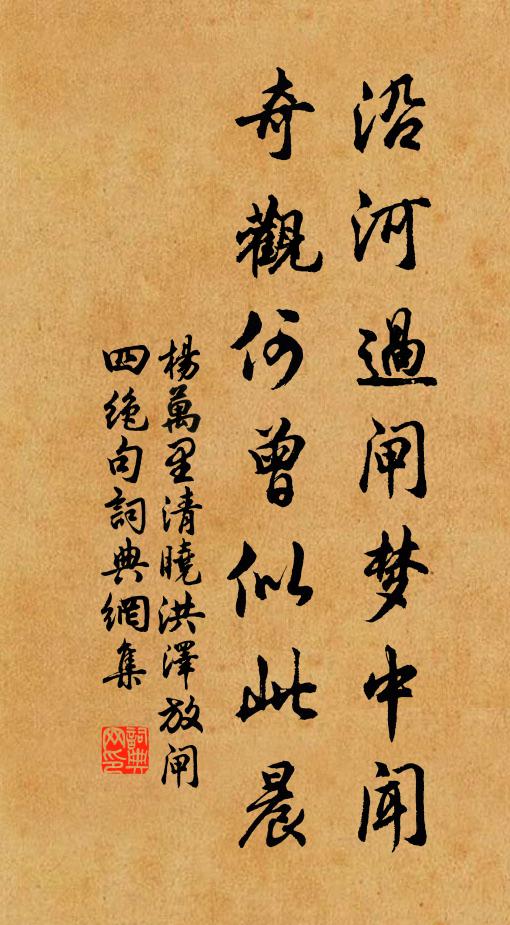 沿河過闸梦中闻
奇觀何曾似此晨
楊萬里清曉洪澤放闸
四绝句詞典網集
詞典
网印